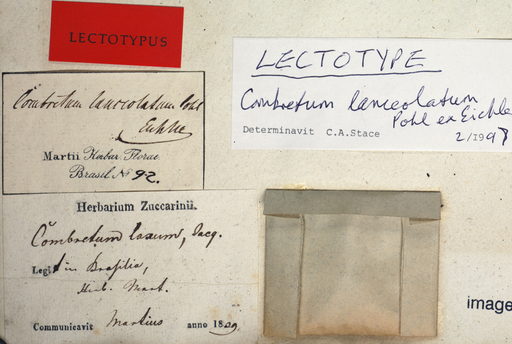 LECTOTYPUS
LECTOTYPE
Combretum lanceolatum
Pohl ex Eichle
Determinavit C.A.Stace
2/1997
Combretum lanceolatum Pohl
Eichler
Martii Herbar. Florae
Brasil. No 92.
Herbarium Zuccarinii.
Combretum laxum, Jacq.
Legit in Brasilia,
Herb. Mart.
Communicavit Martius anno 1839
image